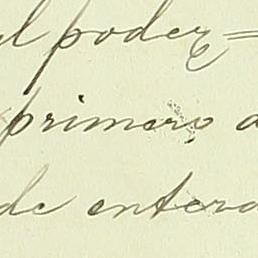 el poder=
primero, a
de entera